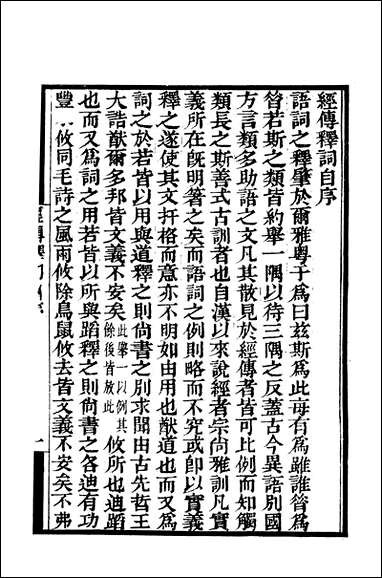 經傳釋詞自序
語詞之釋肇於爾雅粤于爲曰兹斯爲此每有爲雖誰昝爲
昝若斯之類皆約舉一隅以待三隅之反蓋古今異語別國
方言類多助語之文凡其散見於經傳者皆可比例而知觸
類長之斯善式古訓者也自漢以來說經者宗尚雅訓凡實
義所在旣明箸之矣而語詞之例則略而不究或卽以實義
釋之遂使其文扞格而意亦不明如由用也猷道也而又爲
詞之於若皆以用與道釋之則尚書之別求聞由古先哲王
大誥猷爾多邦皆文義不安矣此舉一以例其餘後皆放此攸所也迪蹈
也而又爲詞之用若皆以所與蹈釋之則尚書之各迪有功
豐攸同毛詩之風雨攸除鳥鼠攸去皆文義不安矣不弗
一